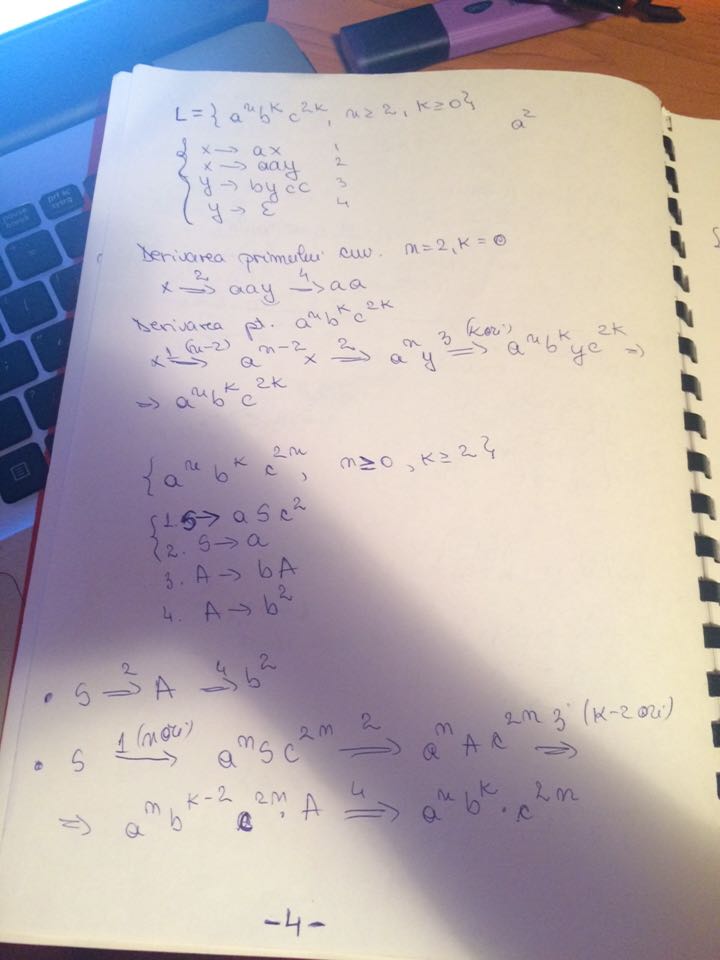 L = { aⁿ b^k c^2k, n ≥ 2, k ≥ 0 }
a²
x → ax 1
x → aay 2
y → bycc 3
y → ε 4
Derivarea primului cuv. n=2, k=0
x ⇒^2 aay ⇒^4 aa
Derivarea pt. aⁿ b^k c^2k
x ⇒^1(n-2) a^n-2 x ⇒^2 aⁿ y ⇒^3 (k ori) aⁿ b^k y c^2k ⇒
⇒ aⁿ b^k c^2k
{ aⁿ b^k c^2n, n ≥ 0, k ≥ 2 }
1. S → a S c²
2. S → a
3. A → bA
4. A → b²
• S ⇒^2 A ⇒^4 b²
• S ⇒^1 (n ori) aⁿ S c^2n ⇒^2 aⁿ A c^2n ⇒^3 (k-2 ori)
⇒ aⁿ b^k-2 c^2n . A ⇒^4 aⁿ b^k . c^2n
-4-